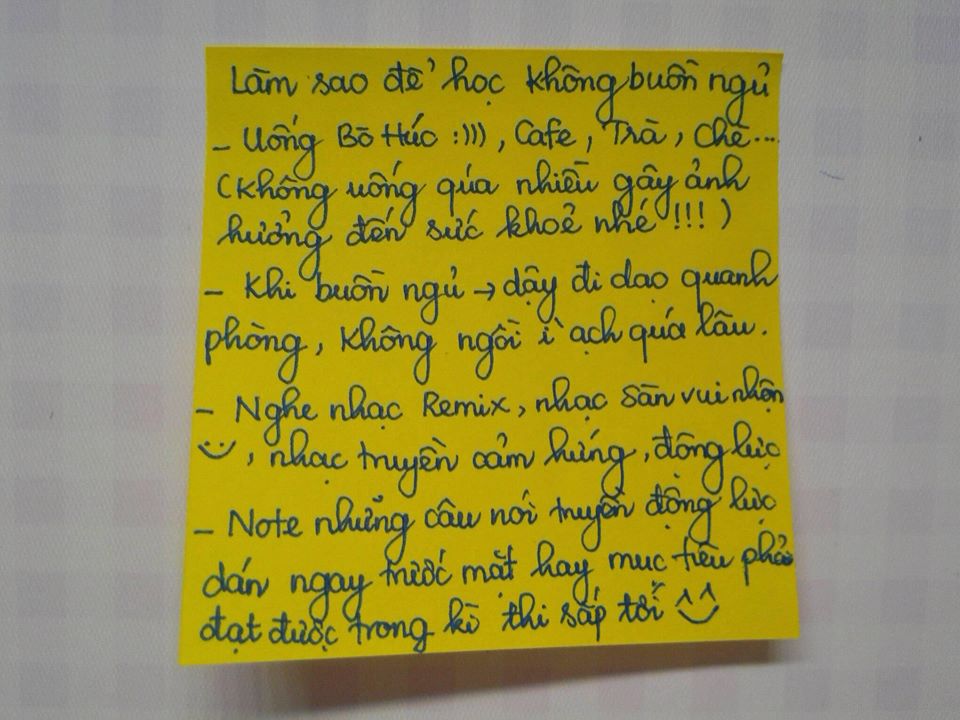 Làm sao để học không buồn ngủ
- Uống Bò Húc :))), Cafe, Trà, chè...
(không uống qúa nhiều gây ảnh
hưởng đến sức khoẻ nhé !!! )
- Khi buồn ngủ → dậy đi dạo quanh
phòng, không ngồi ì ạch quá lâu.
- Nghe nhạc Remix, nhạc sàn vui nhộn
, nhạc truyền cảm hứng, động lực
- Note những câu nói truyền động lực
dán ngay trước mặt hay mục tiêu phải
đạt được trong kì thi sắp tới ^^